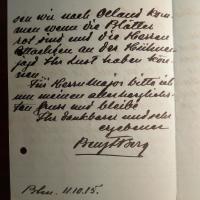 wir nach Oeland kom-
men wenn die Blätter
rot sind und die Herren
an der Hühner-
jagd Ihr Lust haben kön-
nen.
Für Herrn Major bitte ich
um meinen allerherzlichs-
ten Gruss und bleibe
Ihr dankbarer und sehr
ergebener
Bengt Berg
11.10.15.